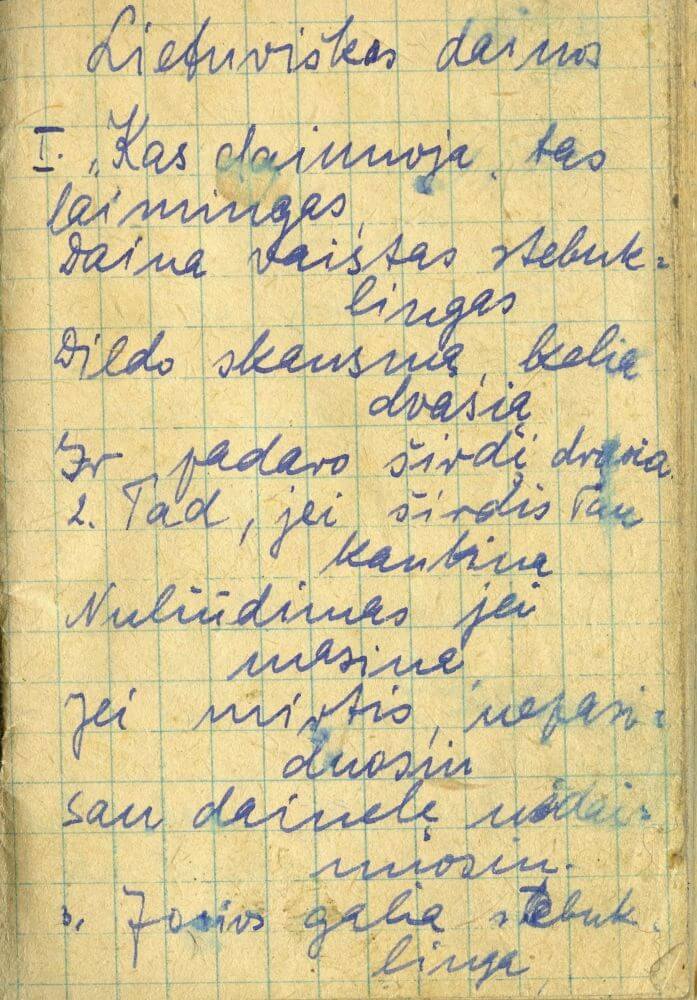 Lietuviškos dainos
I. „Kas dainuoja, tas
laimingas,
Daina vaistas stebuk=
lingas
Dildo skausmą, kelia
dvasią
Ir padaro širdį drąsia.
2. Tad, jei širdis Tau
kankina
Nuliūdimas jei
masina
Jei mirtis, nepasi=
duosiu
sau dainelę uždai=
nuosiu.
3. Josios galia stebuk-
linga